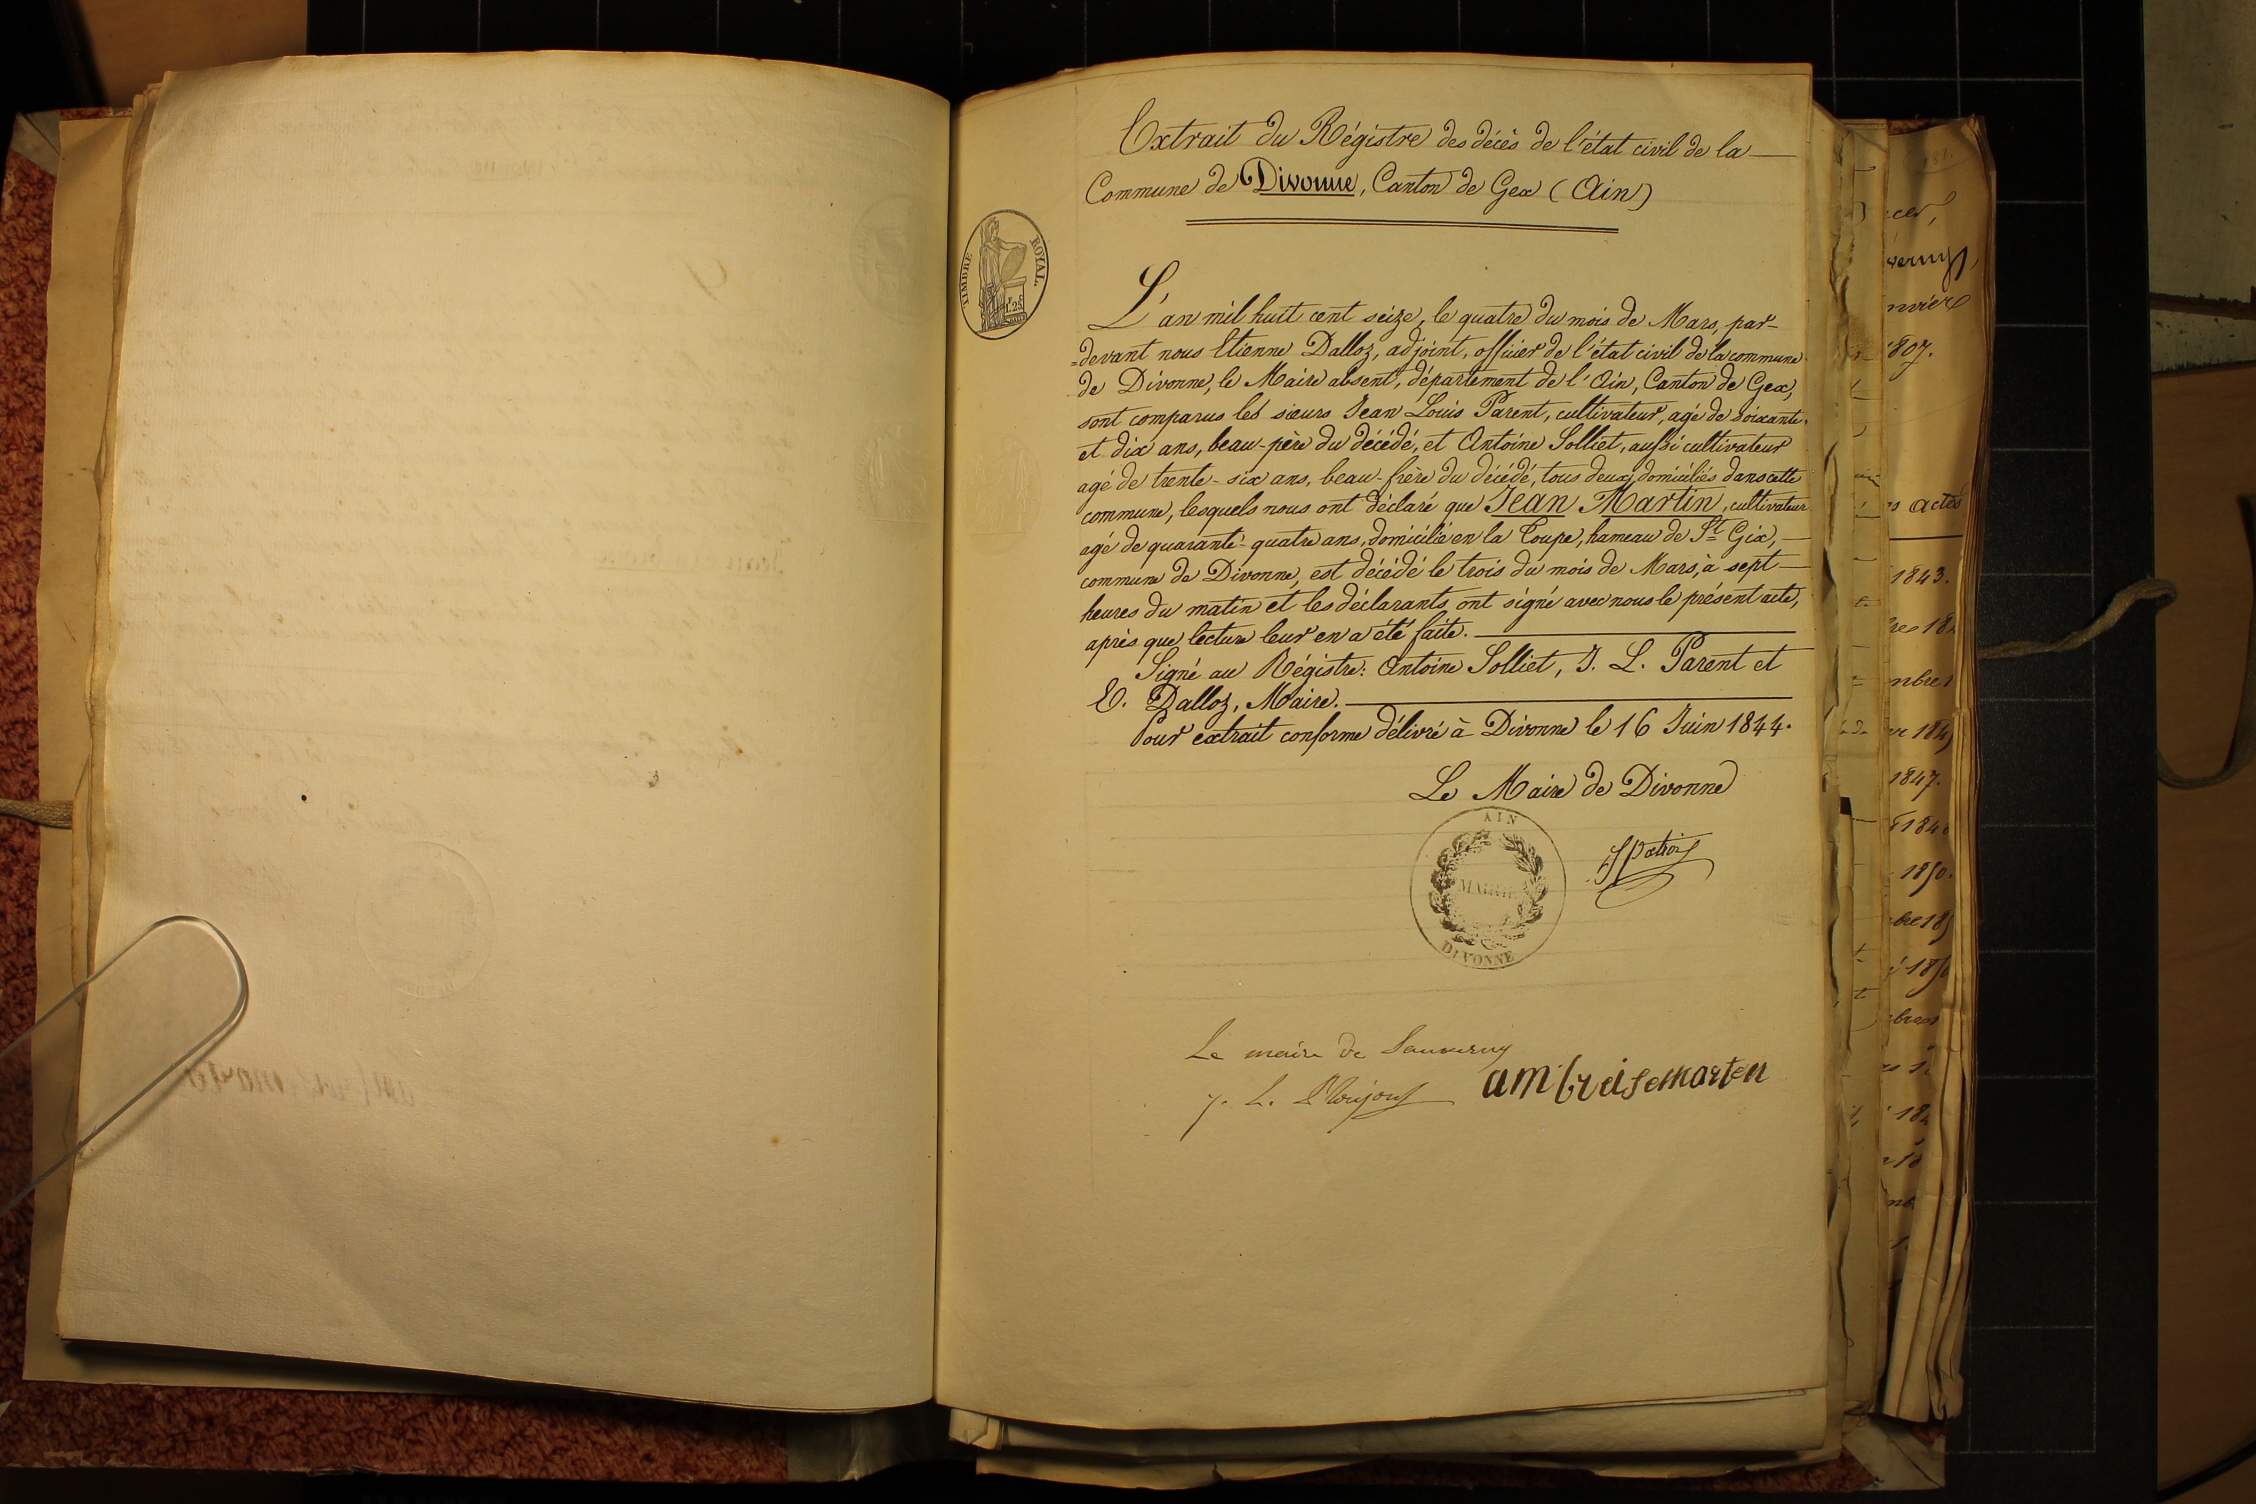 Extrait du Régistre des décès de l'état civil de la
Commune de Divonne, Canton de Gex (Ain)
TIMBRE ROYAL
1f 25c
L'an mil huit cent seize, le quatre du mois de Mars, par-
=devant nous Etienne Dalloz, adjoint, officier de l'état civil de la commune
de Divonne, le Maire absent, département de l'Ain, Canton de Gex,
sont comparus les sieurs Jean Louis Parent, cultivateur, agé de soixante
et dix ans, beau-père du décédé, et Antoine Solliet, aussi cultivateur
agé de trente-six ans, beau-frère du décédé, tous deux domiciliés dans cette
commune, lesquels nous ont déclaré que Jean Martin, cultivateur
agé de quarante-quatre ans, domicilié en la Coupe, hameau de St Gix,
commune de Divonne, est décédé le trois du mois de Mars, à sept
heures du matin et les déclarants ont signé avec nous le présent acte,
après que lecture leur en a été faite.
Signé au Régistre: Antoine Solliet, J. L. Parent et
E. Dalloz, Maire.
Pour extrait conforme délivré à Divonne le 16 Juin 1844.
Le Maire de Divonne
AIN
MAIRIE
DIVONNE
Le maire de Sauverny
ambroisemarten
cer,
verny,
nvier
1807.
actes
1843.
mbre
1847.
1850.